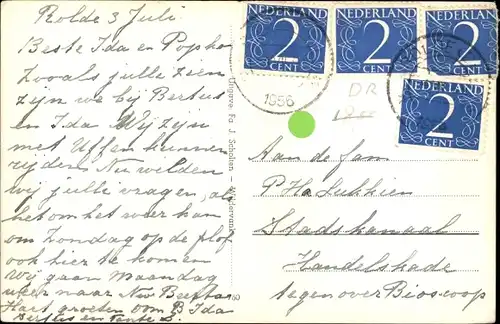 Rolde 3 Juli.
Beste Ida en Popko
Zooals jullie zien
zijn we bij Bertus
en Ida Wij zijn
met Uffen kunnen
rijden Nu wilden
wij jullie vragen, als
het om het weer kan
om Zondag op de plof
ook hier te komen
Wij gaan Maandag
weer naar New
Hart. groeten oom B Ida
Bertus en Tante
Uitgave. Fa J. Scholten
60
NEDERLAND
2
CENT
NEDERLAND
2
CENT
NEDERLAND
2
CENT
NEDERLAND
2
CENT
1956
DR
Aan de fam
P Ha Lukkien
Stadskanaal
Handelskade
tegenover Bioscoop